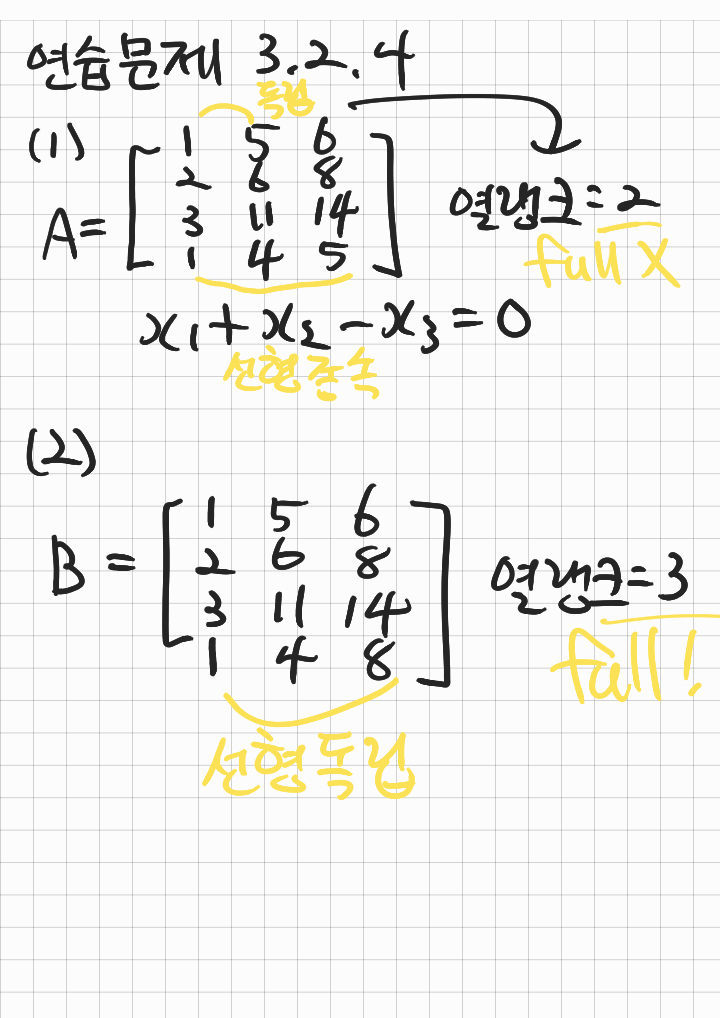 연습문제 3.2.4
독립
(1)
A= [ 1 5 6
2 6 8
3 11 14
1 4 5 ]
열랭크=2
full X
x₁+x₂-x₃=0
선형종속
(2)
B = [ 1 5 6
2 6 8
3 11 14
1 4 8 ]
열랭크=3
full!
선형독립